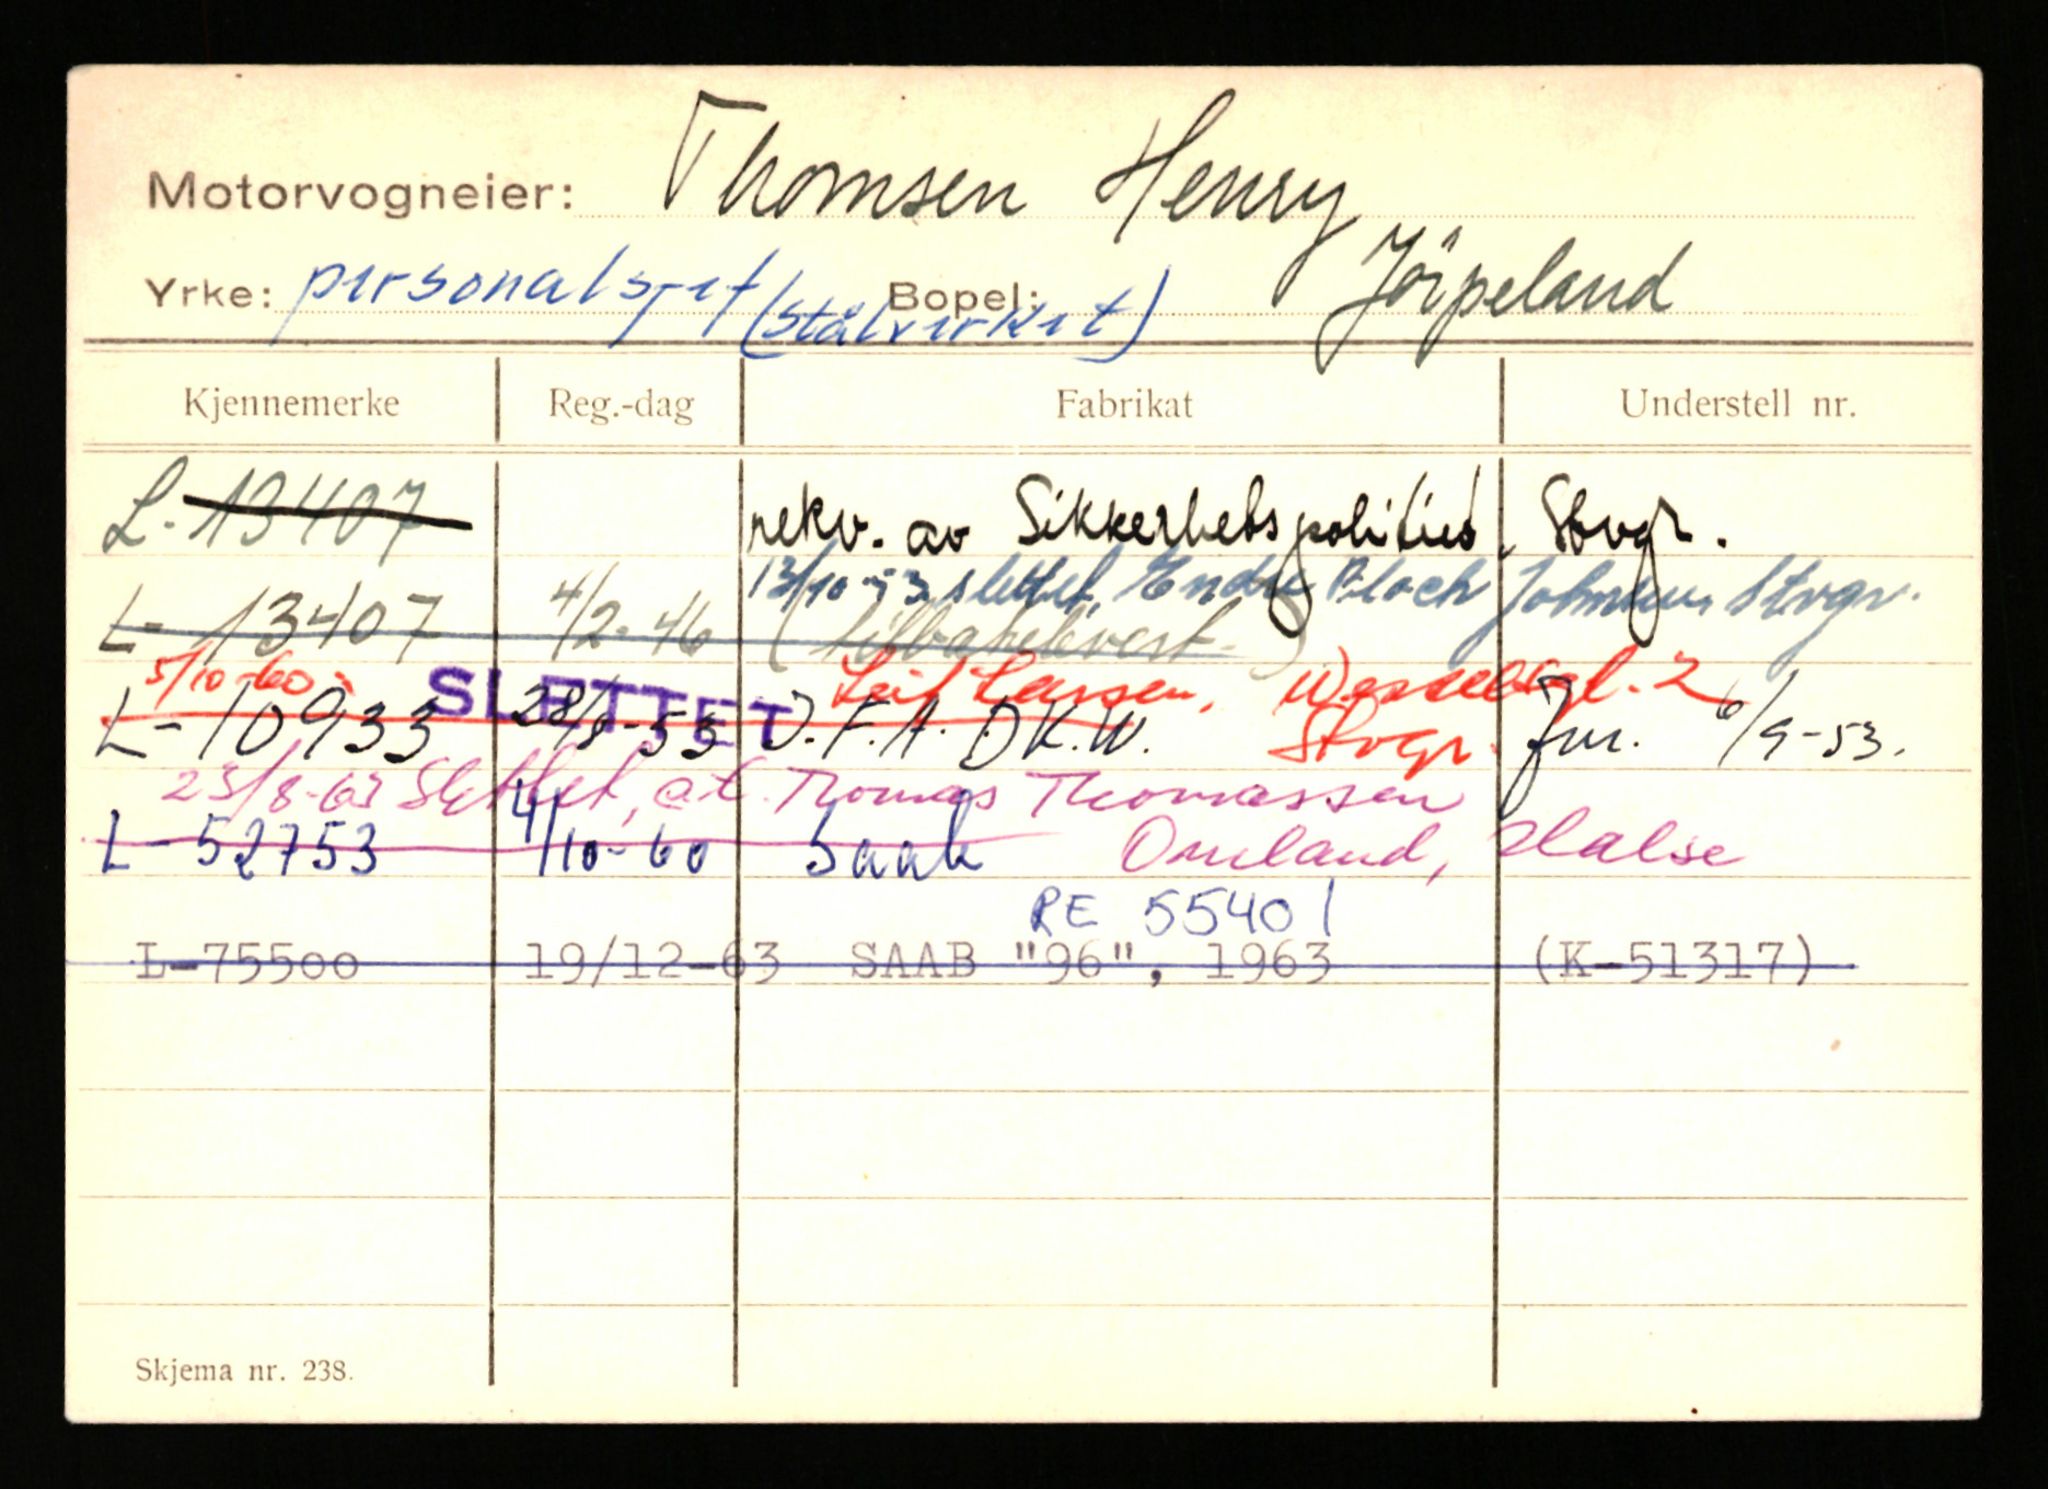 Motorvogneier: Thomsen Henry
Yrke: personalsjef (stålverket) Bopel: Jörpeland
Kjennemerke Reg.-dag Fabrikat Understell nr.
L-13407 rekv. av Sikkerhetspolitiet, Stvgr.
13/10-53 slettet, Endre Bloch Johnsen, Stvgr.
L-13407 4/2-46 (tilbakelevert)
5/10-60: SLETTET Leif Larsen, Wesselsgt. 2
L-10933 28/8-53 I.F.A. D.K.W. Stvgr. Jnr. 6/9-53.
23/8-63 Slettet, at. Thomas Thomassen
L-52753 4/10-60 Saab Omland, Halse
RE 55401
L-75500 19/12-63 SAAB "96", 1963 (K-51317)
Skjema nr. 238.